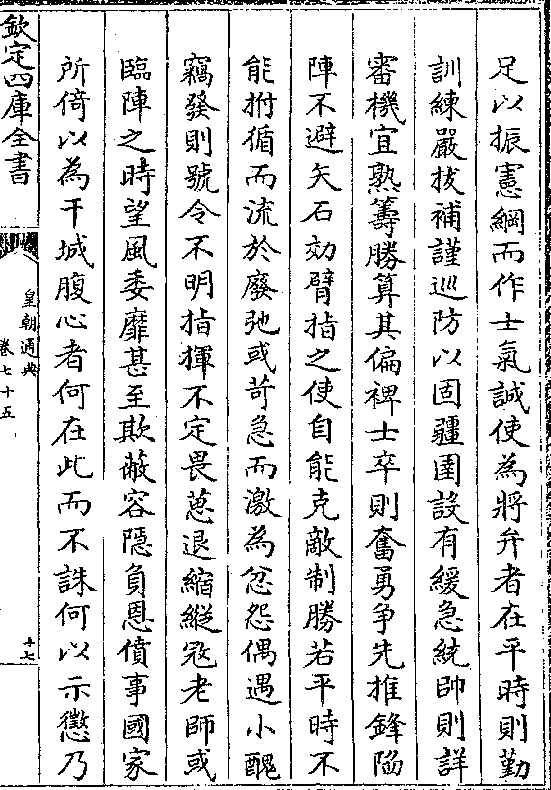 足以振憲綱而作士氣誠使為將弁者在平時則勤
訓練嚴拔補謹巡防以固疆圉設有緩急統帥則詳
審機宜熟籌勝算其偏裨士卒則奮勇爭先摧鋒陷
陣不避矢石効臂指之使自能克敵制勝若平時不
能拊循而流於廢弛或苛急而激為忿怨偶遇小醜
竊發則號令不明指揮不定畏葸退縮縱冦老師或
臨陣之時望風委靡甚至欺蔽容隱負恩僨事國家
所倚以為干城腹心者何在此而不誅何以示懲乃
欽定四庫全書
皇朝通典
卷七十五
十七